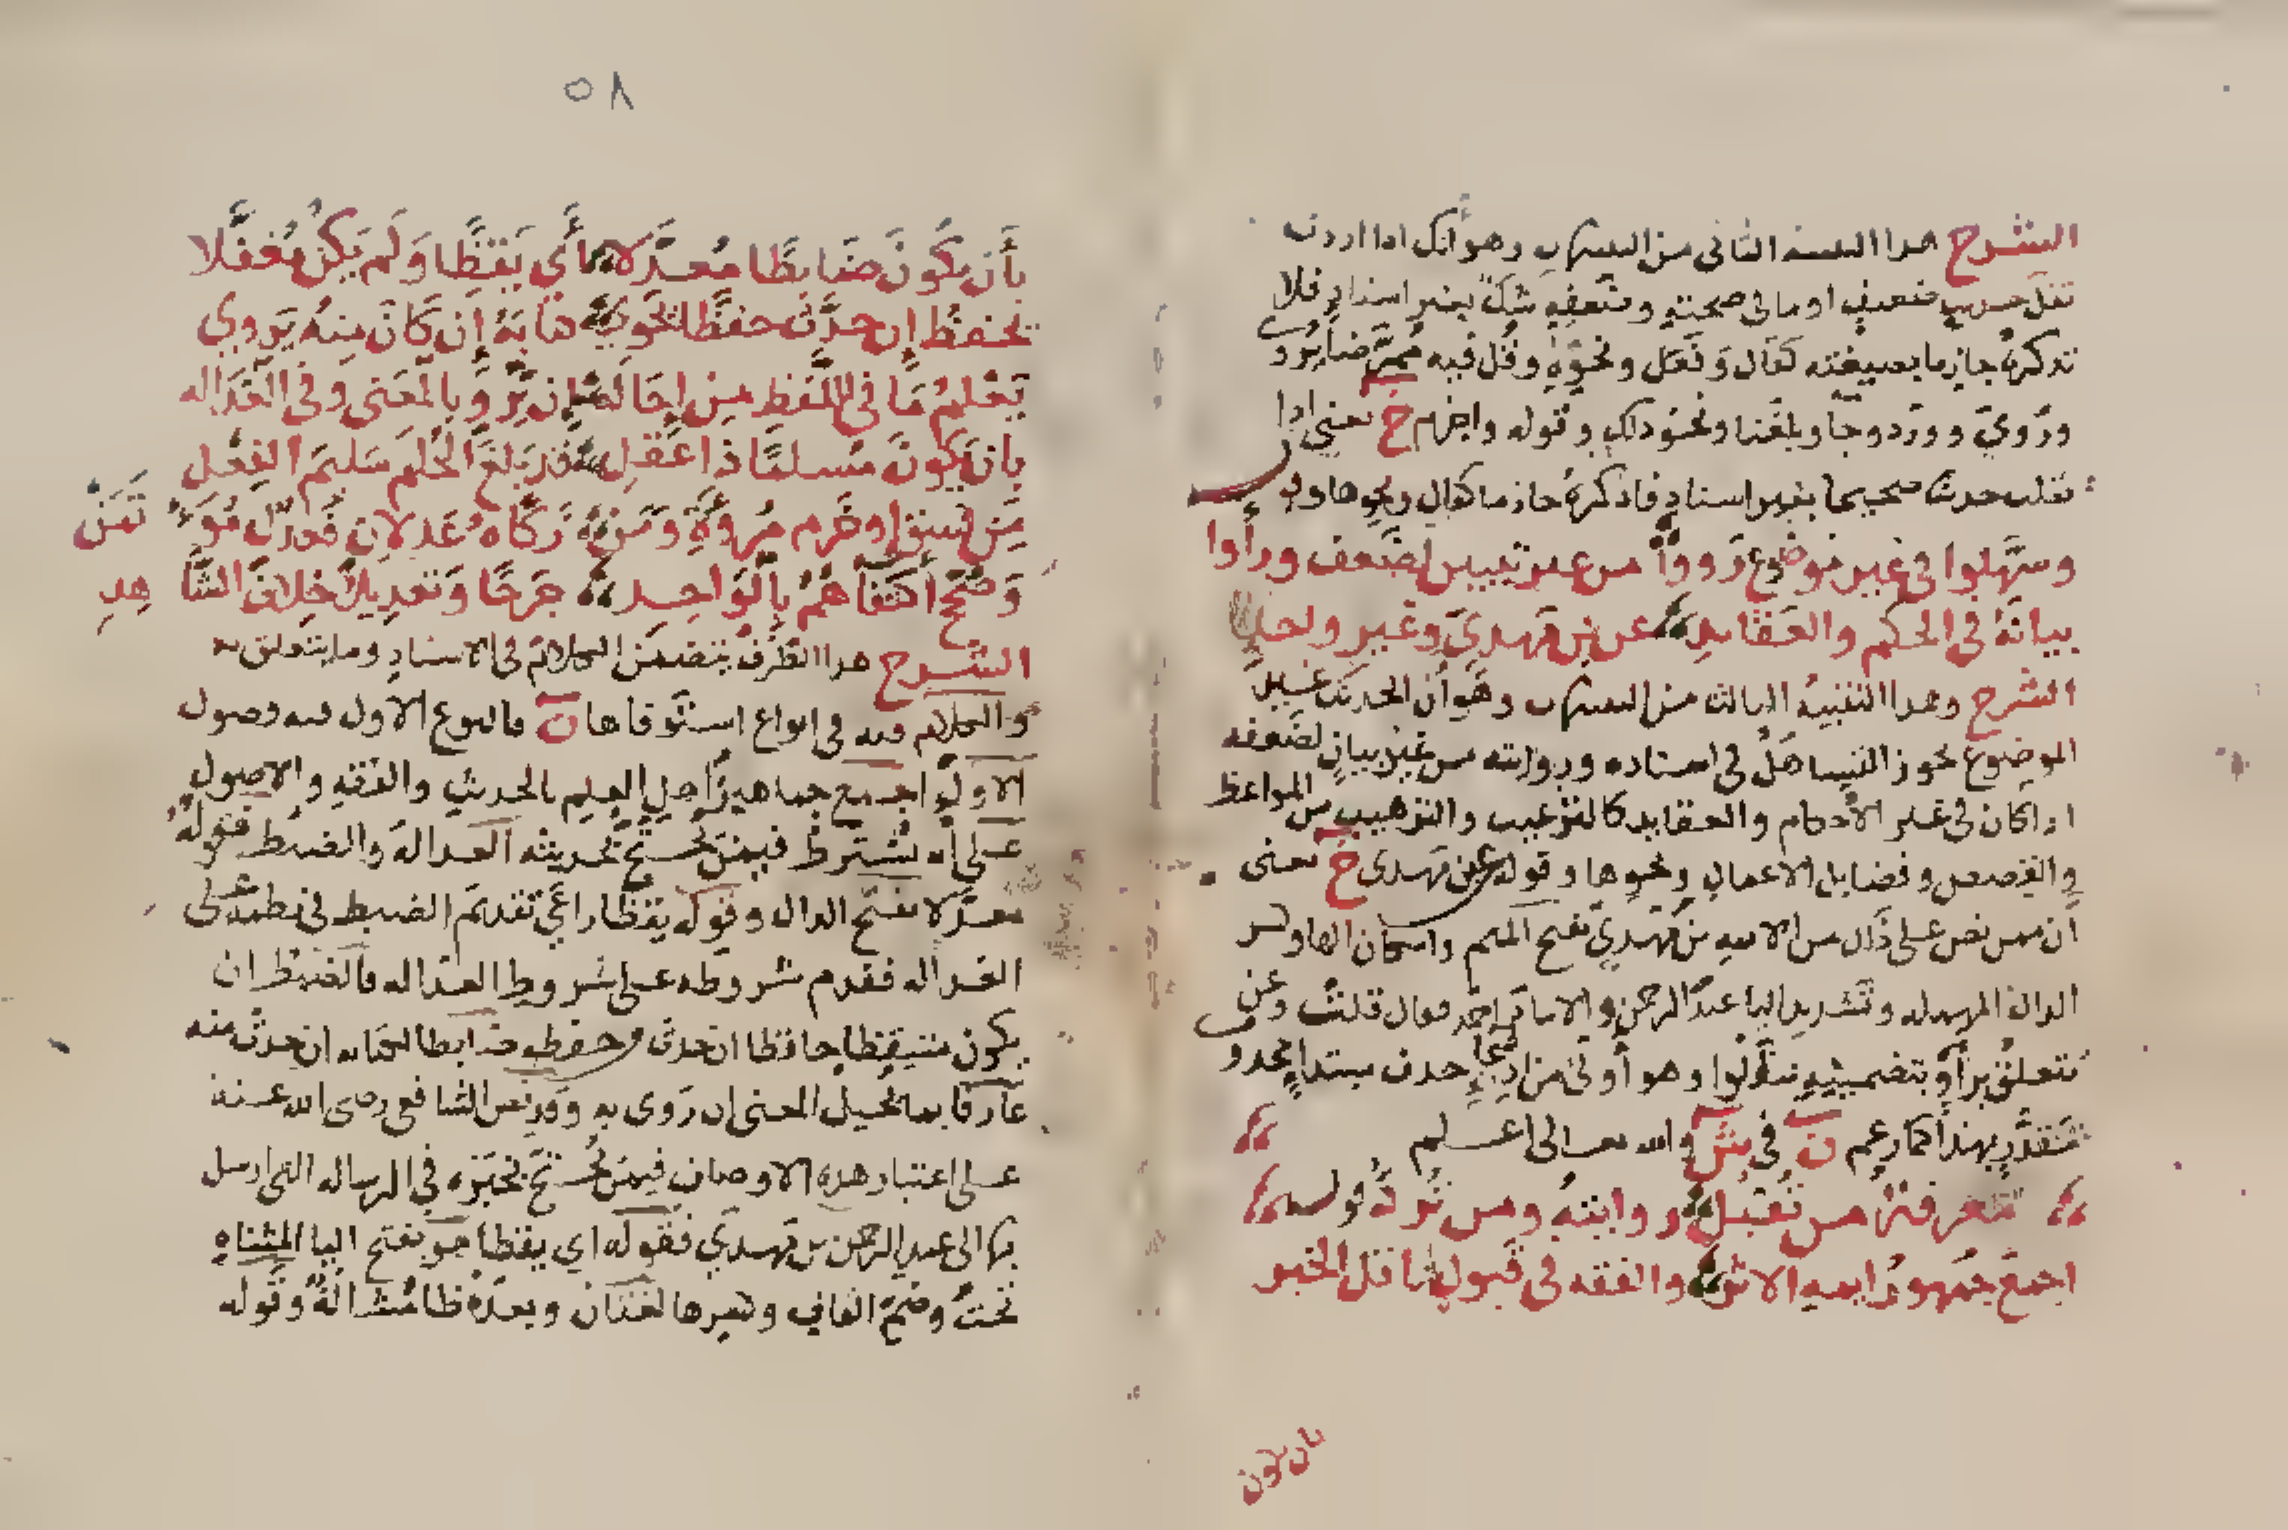 الشرح هدا التنبيه الثانى من التنبيهات وهو أنك ادا اردت
نقل حديث ضعيف او ما فى صحته وضعفه شك بغير اسناد فلا
تذكره جازما بصيغته كقال وفعل ونحوه وقل فيه ممرضا يُروى
ورُوي وورد وجا وبلغنا ونحو ذلك وقوله واجزم خ يعنى ادا
نقلت حديثا صحيحا بغير اسناد فاذكره جازما كقال ونحوها
وسهلوا في غير موضوع رووا من غير تبيين لضعف ورأوا
بيانه في الحكم والعقايد عن بن مهدي وغير واحد
الشرح وهدا التنبيه الثالث من التنبيهات وهو أن الحديث غير
الموضوع يجوز التساهل في اسناده وروايته من غير بيان لضعفه
اذا كان في غير الأحكام والعقايد كالترغيب والترهيب من المواعظ
والقصص وفضايل الاعمال ونحوها وقوله عن بن مهدي خ يعنى
أن ممن نص على ذلك من الايمه بن مهدي بفتح الميم واسكان الها وكسر
الدال المهمله وتشديد اليا عبد الرحمن والامام احمد قلت وعن
يتعلق برأوا وهو أولى من حدف مبتدا
بهذا كما زعم ن في ش والله تعالى اعلم
معرفة من تقبل روايته ومن ترد قوله
اجمع جمهور ايمه الاثر والفقه في قبول ناقل الخبر
بان يكون
٥٨
بأن يكون ضابطا معدلا أي يقظا ولم يكن مغفلا
يحفظ إن حدث حفظا يحوي كتابه إن كان منه يروي
يعلم ما في اللفظ من إحاله إن يرو بالمعنى وفي العداله
بان يكون مسلما ذا عقل قد بلغ الحلم سليم الفعل
من فسق او خرم مروة ومن زكاه عدلان فعدل مؤتمن
وصحح اكتفاهم بالواحد جرحا وتعديلا خلاف الشاهد
الشرح هدا الطرف يتضمن الكلام في الاسناد وما يتعلق به
والكلام فيه في انواع استوفاها ن فالنوع الاول فيه فصول
الاول اجمع جماهير أهل العلم بالحديث والفقه والاصول
على أنه يشترط فيمن يحتج بحديثه العدالة والضبط فقوله
معدلا بفتح الدال وقوله يقظا راعى تقديم الضبط في نظمه على
العداله فقدم شروطه على شروط العداله فالضبط ان
يكون متيقظا حافظا ان حدث من حفظه ضابطا لكتابه ان حدث منه
عارفا بما يحيل المعنى ان روى به وقد نص الشافعي رضى الله عنه
على اعتبار هده الاوصاف فيمن يحتج بخبره في الرساله التي ارسل
بها الى عبد الرحمن بن مهدي فقوله اي يقظا هو بفتح اليا المثناه
تحت وضم القاف وكسرها لغتان وبعده ظا مشالة وقوله